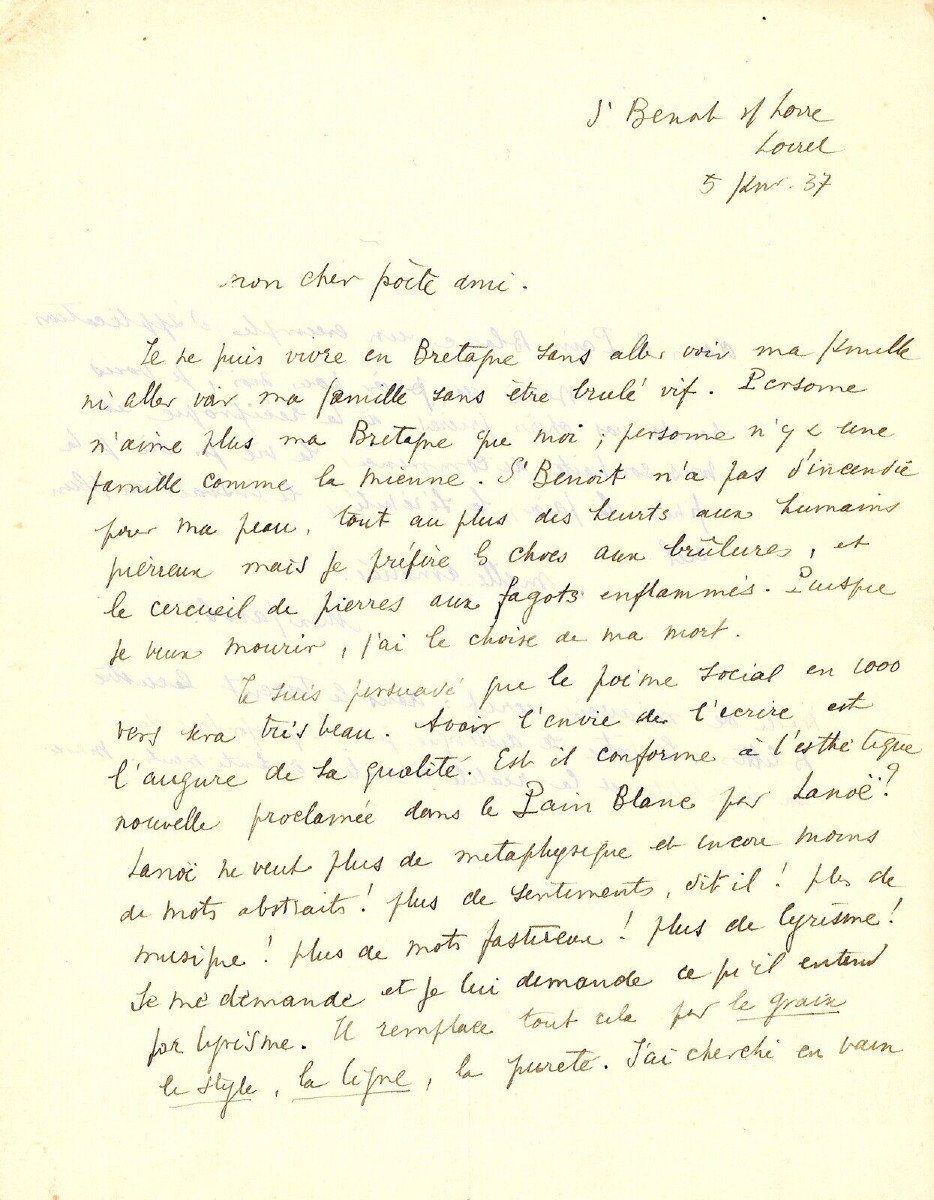 St Benoit s/ Loire
Loiret
5 Janv. 37
mon cher poète ami.
Je ne puis vivre en Bretagne sans aller voir ma famille
ni aller voir ma famille sans être brulé vif. Personne
n'aime plus ma Bretagne que moi, personne n'y a une
famille comme la mienne. St Benoit n'a pas d'incendie
pour ma peau, tout au plus des heurts aux humains
pierreux mais je préfère les chocs aux brûlures, et
le cercueil de pierres aux fagots enflammés. Puisque
je veux mourir, j'ai le choix de ma mort.
Je suis persuadé que le poème social en 1000
vers sera très beau. Avoir l'envie de l'écrire est
l'augure de sa qualité. Est il conforme à l'esthétique
nouvelle proclamée dans le Pain Blanc par Lanoë?
Lanoë ne veut plus de métaphysique et encore moins
de mots abstraits! plus de sentiments, dit il! plus de
musique! plus de mots fastueux! plus de lyrisme!
Je me demande et je lui demande ce qu'il entend
par lyrisme. Il remplace tout cela par le grain
le style, la ligne, la pureté. J'ai cherché en vain